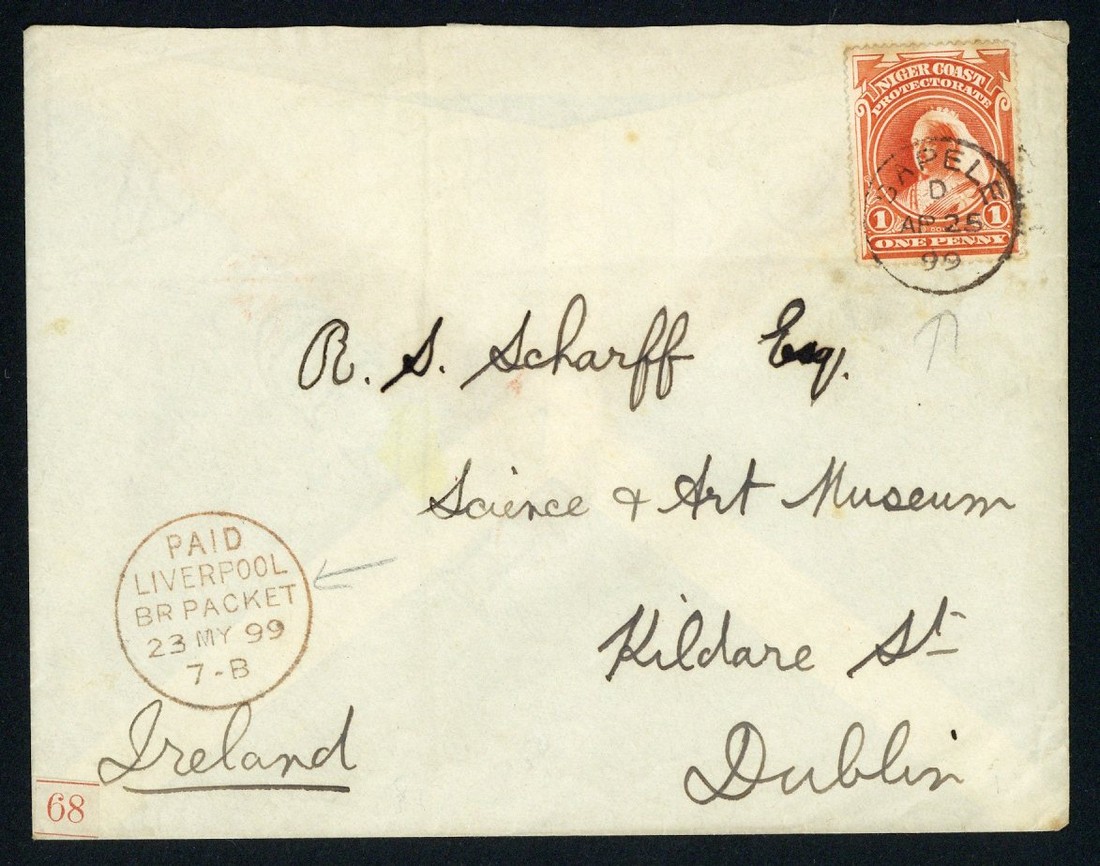 NIGER COAST
PROTECTORATE
1 1
ONE PENNY
SAPELE
D
AP 25
99
R. S. Scharff Esq.
Science & Art Museum
Kildare St
Dublin
Ireland
PAID
LIVERPOOL
BR PACKET
23 MY 99
7-B
68